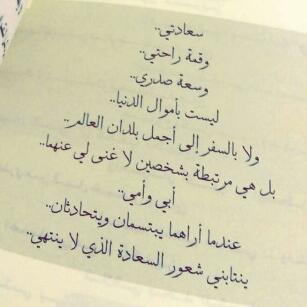 سعادتي..
وقمة راحتي..
وسعة صدري..
ليست بأموال الدنيا..
ولا بالسفر إلى أجمل بلدان العالم..
بل هي مرتبطة بشخصين لا غنى لي عنهما..
أبي وأمي..
عندما أراهما يبتسمان ويتحادثان..
ينتابني شعور السعادة الذي لا ينتهي..